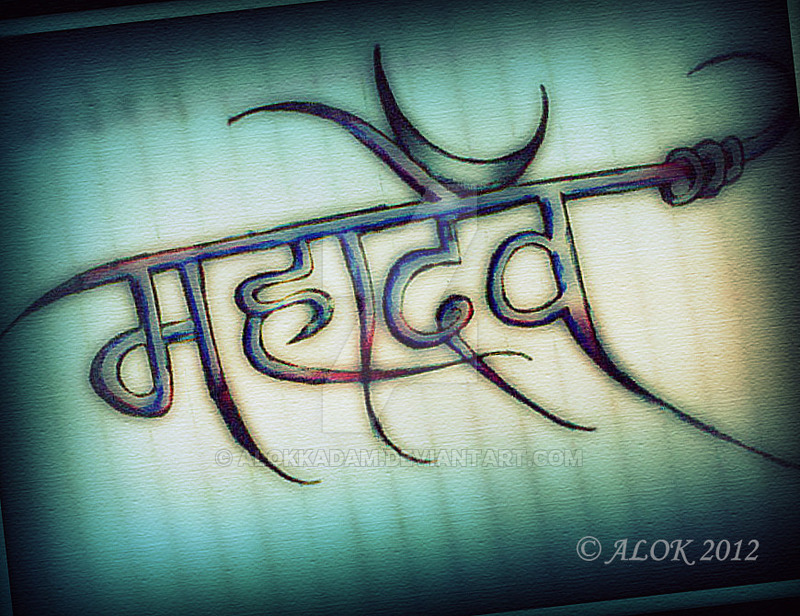 महादेव
© ALOKKADAM.DEVIANTART.COM
© ALOK 2012